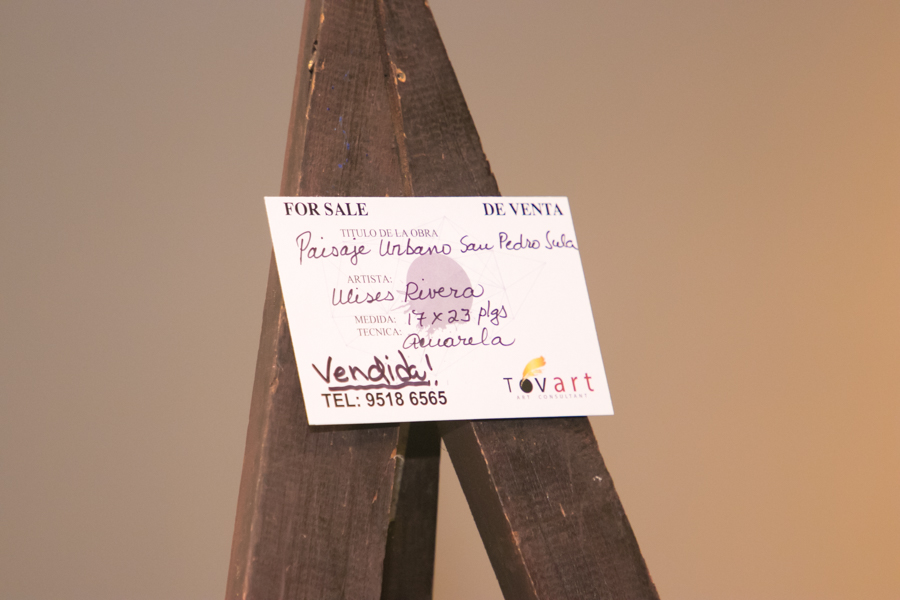 FOR SALE DE VENTA
TITULO DE LA OBRA
Paisaje Urbano San Pedro Sula
ARTISTA: Ulises Rivera
MEDIDA: 17 x 23 plgs
TECNICA: Acuarela
Vendida!
TEL: 9518 6565
Tovart
ART CONSULTANT